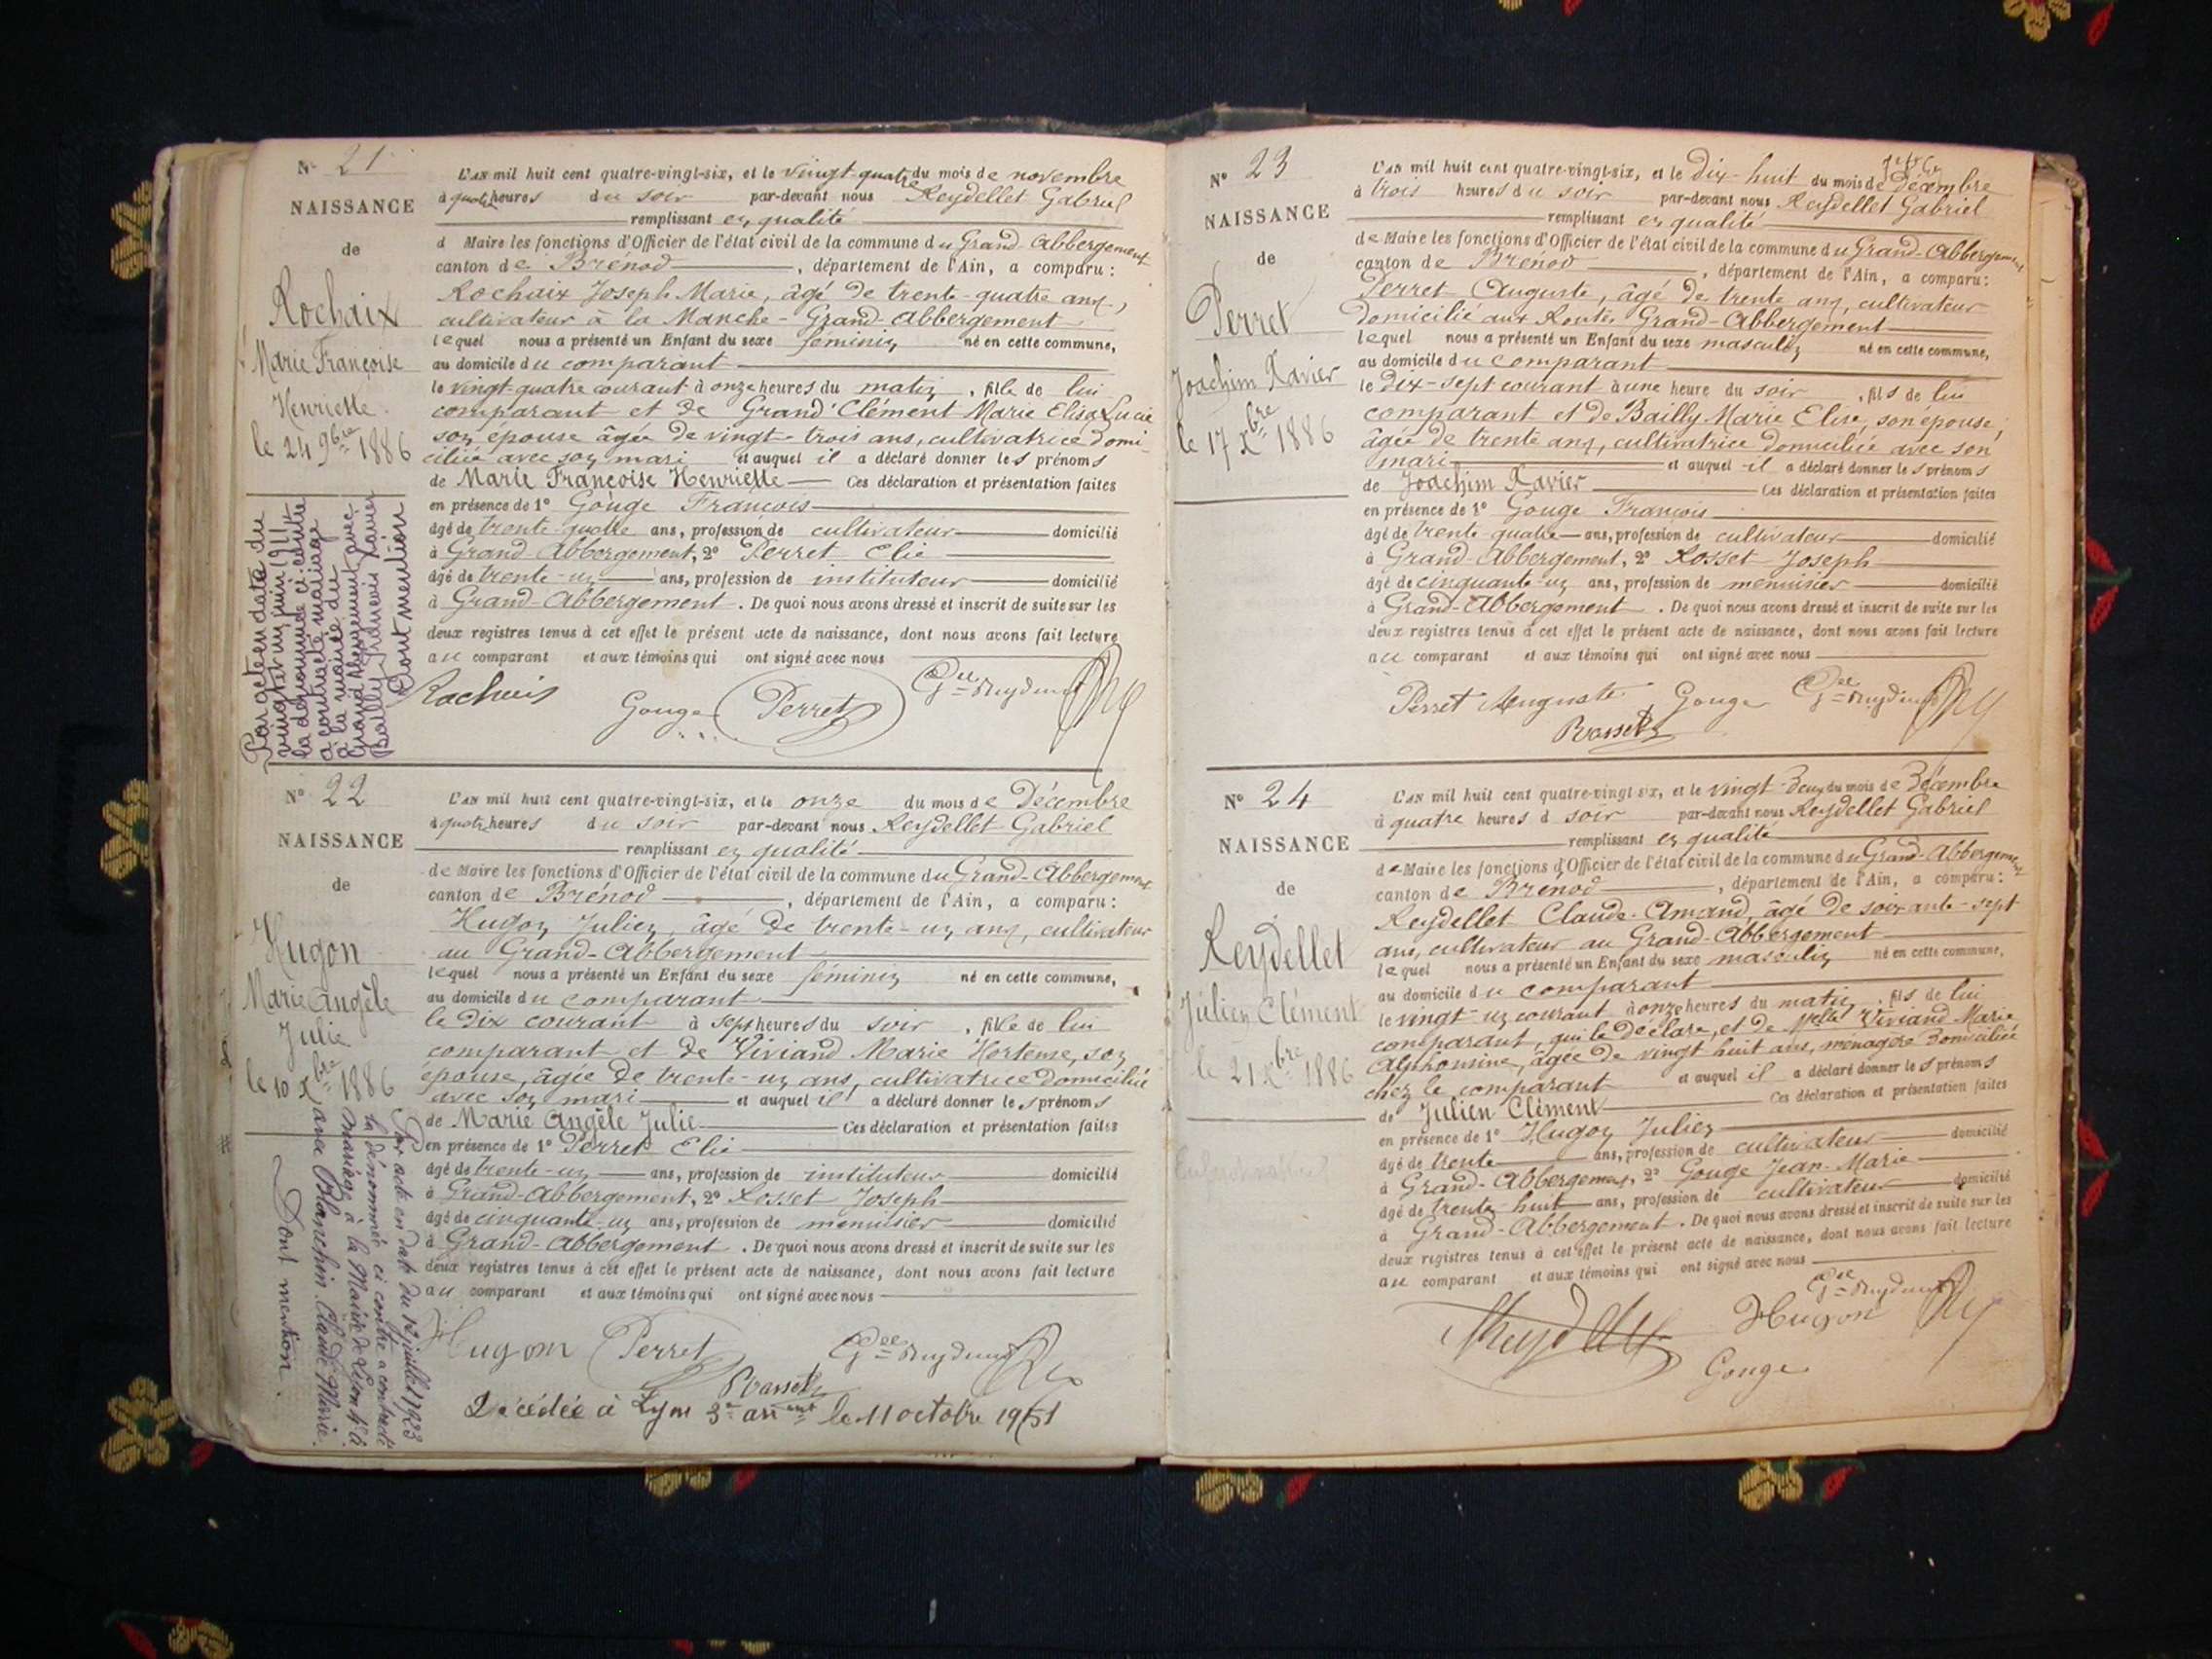 N° 21
NAISSANCE
de
Rochaix
Marie Françoise
Henriette
le 24 9bre 1886
Par acte en date du
vingt et un juin 1911
la dénommée ci-contre
a contracté mariage
à la mairie du
Grand Abergement avec
Bailly François Xavier
Dont mention
L'AN mil huit cent quatre-vingt-six, et le vingt-quatre du mois de novembre
à quatre heures du soir par-devant nous Reydellet Gabriel
remplissant en qualité
d Maire les fonctions d'Officier de l'état civil de la commune du Grand-Abbergement
canton de Brénod, département de l'Ain, a comparu:
Rochaix Joseph Marie, âgé de trente-quatre ans,
cultivateur à la Manche-Grand-Abbergement
lequel nous a présenté un Enfant du sexe féminin né en cette commune,
au domicile du comparant
le vingt-quatre courant à onze heures du matin, fille de lui
comparant et de Grand'Clément Marie Elisa Lucie
son épouse âgée de vingt-trois ans, cultivatrice domi-
ciliée avec son mari et auquel il a déclaré donner les prénoms
de Marie Françoise Henriette Ces déclaration et présentation faites
en présence de 1° Gouge François
âgé de trente-quatre ans, profession de cultivateur domicilié
à Grand-Abbergement, 2° Perret Elie
âgé de trente-un ans, profession de instituteur domicilié
à Grand-Abbergement. De quoi nous avons dressé et inscrit de suite sur les
deux registres tenus à cet effet le présent acte de naissance, dont nous avons fait lecture
au comparant et aux témoins qui ont signé avec nous
Rochaix Gouge Perret
N° 22
NAISSANCE
de
Hugon
Marie Angèle
Julie
le 10 Xbre 1886
Par acte en date du 12 juillet 1923
la dénommée ci contre a contracté
mariage à la Mairie de Lyon 4e à
avec Blanchin Claude Marie.
Dont mention.
L'AN mil huit cent quatre-vingt-six, et le onze du mois de Décembre
à quatre heures du soir par-devant nous Reydellet Gabriel
remplissant en qualité
de Maire les fonctions d'Officier de l'état civil de la commune du Grand-Abbergement
canton de Brénod, département de l'Ain, a comparu:
Hugon Julien, âgé de trente-un ans, cultivateur
au Grand-Abbergement
lequel nous a présenté un Enfant du sexe féminin né en cette commune,
au domicile du comparant
le dix courant à sept heures du soir, fille de lui
comparant et de Viviand Marie Hortense, son
épouse, âgée de trente-un ans, cultivatrice domiciliée
avec son mari et auquel il a déclaré donner les prénoms
de Marie Angèle Julie Ces déclaration et présentation faites
en présence de 1° Perret Elie
âgé de trente-un ans, profession de instituteur domicilié
à Grand-Abbergement, 2° Rosset Joseph
âgé de cinquante-un ans, profession de menuisier domicilié
à Grand-Abbergement. De quoi nous avons dressé et inscrit de suite sur les
deux registres tenus à cet effet le présent acte de naissance, dont nous avons fait lecture
au comparant et aux témoins qui ont signé avec nous
Hugon Perret
Rosset
Décédée à Lyon 3e arrent le 11 octobre 1951
N° 23
NAISSANCE
de
Perret
Joachim Xavier
le 17 Xbre 1886
L'AN mil huit cent quatre-vingt-six, et le dix-huit du mois de Décembre
à trois heures du soir par-devant nous Reydellet Gabriel
remplissant en qualité
de Maire les fonctions d'Officier de l'état civil de la commune du Grand-Abbergement
canton de Brénod, département de l'Ain, a comparu:
Perret Auguste, âgé de trente ans, cultivateur
domicilié aux Routes Grand-Abbergement
lequel nous a présenté un Enfant du sexe masculin né en cette commune,
au domicile du comparant
le dix-sept courant à une heure du soir, fils de lui
comparant et de Bailly Marie Elise, son épouse,
âgée de trente ans, cultivatrice domiciliée avec son
mari et auquel il a déclaré donner les prénoms
de Joachim Xavier Ces déclaration et présentation faites
en présence de 1° Gouge François
âgé de trente quatre ans, profession de cultivateur domicilié
à Grand-Abbergement, 2° Rosset Joseph
âgé de cinquante-un ans, profession de menuisier domicilié
à Grand-Abbergement. De quoi nous avons dressé et inscrit de suite sur les
deux registres tenus à cet effet le présent acte de naissance, dont nous avons fait lecture
au comparant et aux témoins qui ont signé avec nous
Perret Auguste Gouge
Rosset
N° 24
NAISSANCE
de
Reydellet
Julien Clément
le 21 Xbre 1886
L'AN mil huit cent quatre-vingt-six, et le vingt-deux du mois de Décembre
à quatre heures d soir par-devant nous Reydellet Gabriel
remplissant en qualité
de Maire les fonctions d'Officier de l'état civil de la commune du Grand-Abbergement
canton de Brénod, département de l'Ain, a comparu:
Reydellet Claude-Amand, âgé de soixante-sept
ans, cultivateur au Grand-Abbergement
lequel nous a présenté un Enfant du sexe masculin né en cette commune,
au domicile du comparant
le vingt-un courant à onze heures du matin, fils de lui
comparant, qui le déclare, et de Melle Viviand Marie
Alphonsine, âgée de vingt huit ans, ménagère domiciliée
chez le comparant et auquel il a déclaré donner les prénoms
de Julien Clément Ces déclaration et présentation faites
en présence de 1° Hugon Julien
âgé de trente ans, profession de cultivateur domicilié
à Grand-Abbergement, 2° Gouge Jean-Marie
âgé de trente-huit ans, profession de cultivateur domicilié
à Grand-Abbergement. De quoi nous avons dressé et inscrit de suite sur les
deux registres tenus à cet effet le présent acte de naissance, dont nous avons fait lecture
au comparant et aux témoins qui ont signé avec nous
Hugon
Gouge